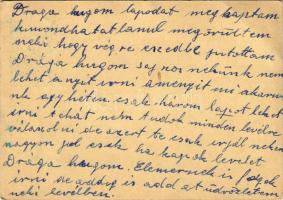 Draga hugom lapodat meg kaptam
kimondhatatlanul megörültem
neki hogy végre eszedbe jutottam
Drága hugom sajnos nekünk nem
lehet anyit irni amenyit mi akarun
nk egy héten csak három lapot lehet
irni tehát nem tudok minden levélre
válaszolni de azért te csak irjál nekem
nagyon jól esik ha kapok levelet
Drága hugom. Elemérnek is fogok
irni de addig is add át üdvözletem
neki levélben.